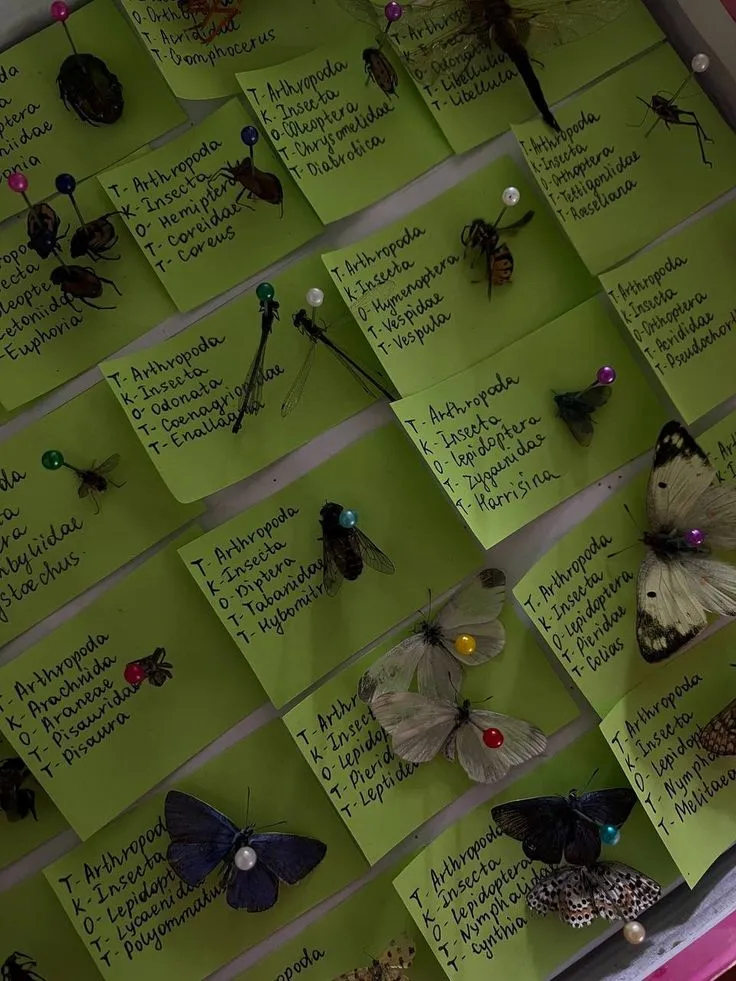 O- Orthop
T- Acridid
T- Gomphocerus
T- Arthropoda
K- Insecta
O- Coleoptera
T- Chrysomelidae
T- Diabrotica
O- Odonata
T- Libellulid
T- Libellula
T- Arthropoda
K- Insecta
O- Orthoptera
T- Tettigoniidae
T- Roeseliana
T- Arthropoda
K- Insecta
O- Hemipter
T- Coreidae
T- Coreus
T- Arthropoda
K- Insecta
O- Hymenoptera
T- Vespidae
T- Vespula
T- Arthropoda
K- Insecta
O- Orthoptera
T- Acrididae
T- Pseudochort
ecta
oleopte
etoniid
Euphoria
T- Arthropoda
K- Insecta
O- Odonata
T- Coenagrionidae
T- Enallag
T- Arthropoda
K- Insecta
O- Lepidoptera
T- Zygaenidae
T- Harrisina
da
mbyliidae
ystoechus
T- Arthropoda
K- Insecta
O- Diptera
T- Tabanidae
T- Hybomitr
T- Arthropoda
K- Insecta
O- Lepidoptera
T- Pieridae
T- Colias
T- Arthropoda
K- Arachnida
O- Araneae
T- Pisaurida
T- Pisaura
T- Arthr
K- Insec
O- Lepido
T- Pierid
T- Leptide
T- Arthropoda
K- Insecta
O- Lepidop
T- Nymph
T- Melitaea
T- Arthropod
K- Insecta
O- Lepidop
T- Lycaenid
T- Polyommatus
T- Arthropod
K- Insecta
O- Lepidoptera
T- Nymphali
T- Cynthia
opoda